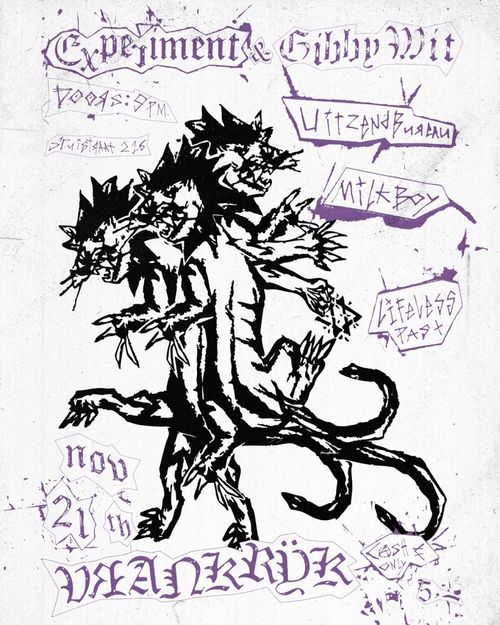 Experiment & Gibby Wit
DOORS: 9 PM.
SPUISTRAAT 215
UitzendBureau
MILKBOY
LifeLess
PAST
nov
21 th
VRANKRŸK
CASH €
ONLY
5,-